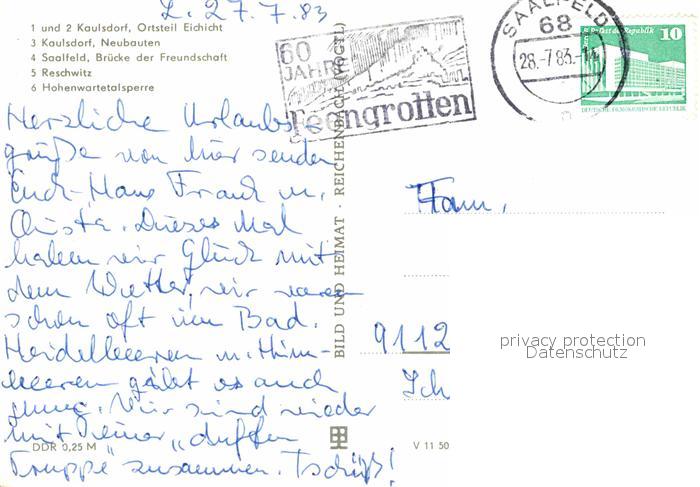 L. 27.7.83
1 und 2 Kaulsdorf, Ortsteil Eichicht
3 Kaulsdorf, Neubauten
4 Saalfeld, Brücke der Freundschaft
5 Reschwitz
6 Hohenwartetalsperre
60
JAHRE
Feengrotten
SAALFELD
68
28.-7.83.-14
Palast der Republik
10
DEUTSCHE DEMOKRATISCHE REPUBLIK
Herzliche Urlaubs-
grüße von hier senden
Euch Hans Frank u.
Christa. Dieses Mal
haben wir Glück mit
dem Wetter, wir waren
schon oft im Bad.
Heidelbeeren u. Him-
beeren gibt es auch
. Wir sind wieder
mit einer „duften
Truppe" zusammen. Tschüß!
BILD UND HEIMAT · REICHENBACH (VOGTL)
Fam.
9112
privacy protection
Datenschutz
DDR 0,25 M
V 11 50